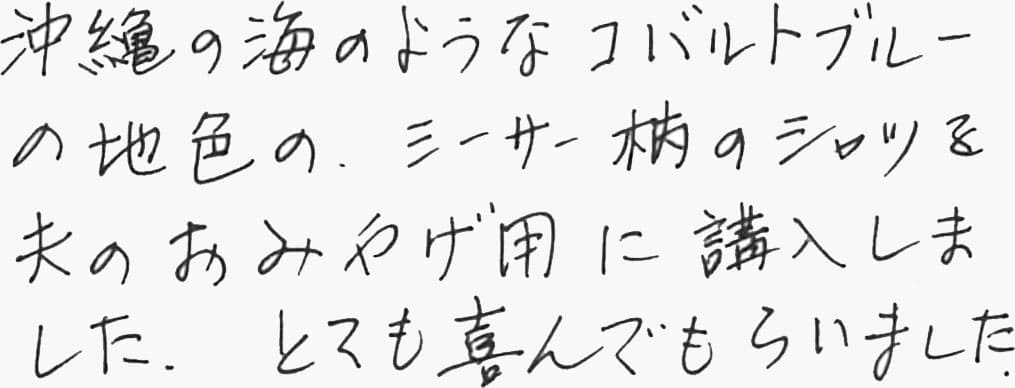 沖縄の海のようなコバルトブルー
の地色の、ミーサー柄のシャツを
夫のおみやげ用に講入しま
した。 とても喜んでもらいました。